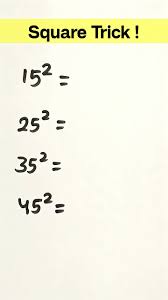 Square Trick !
15² =
25² =
35² =
45² =